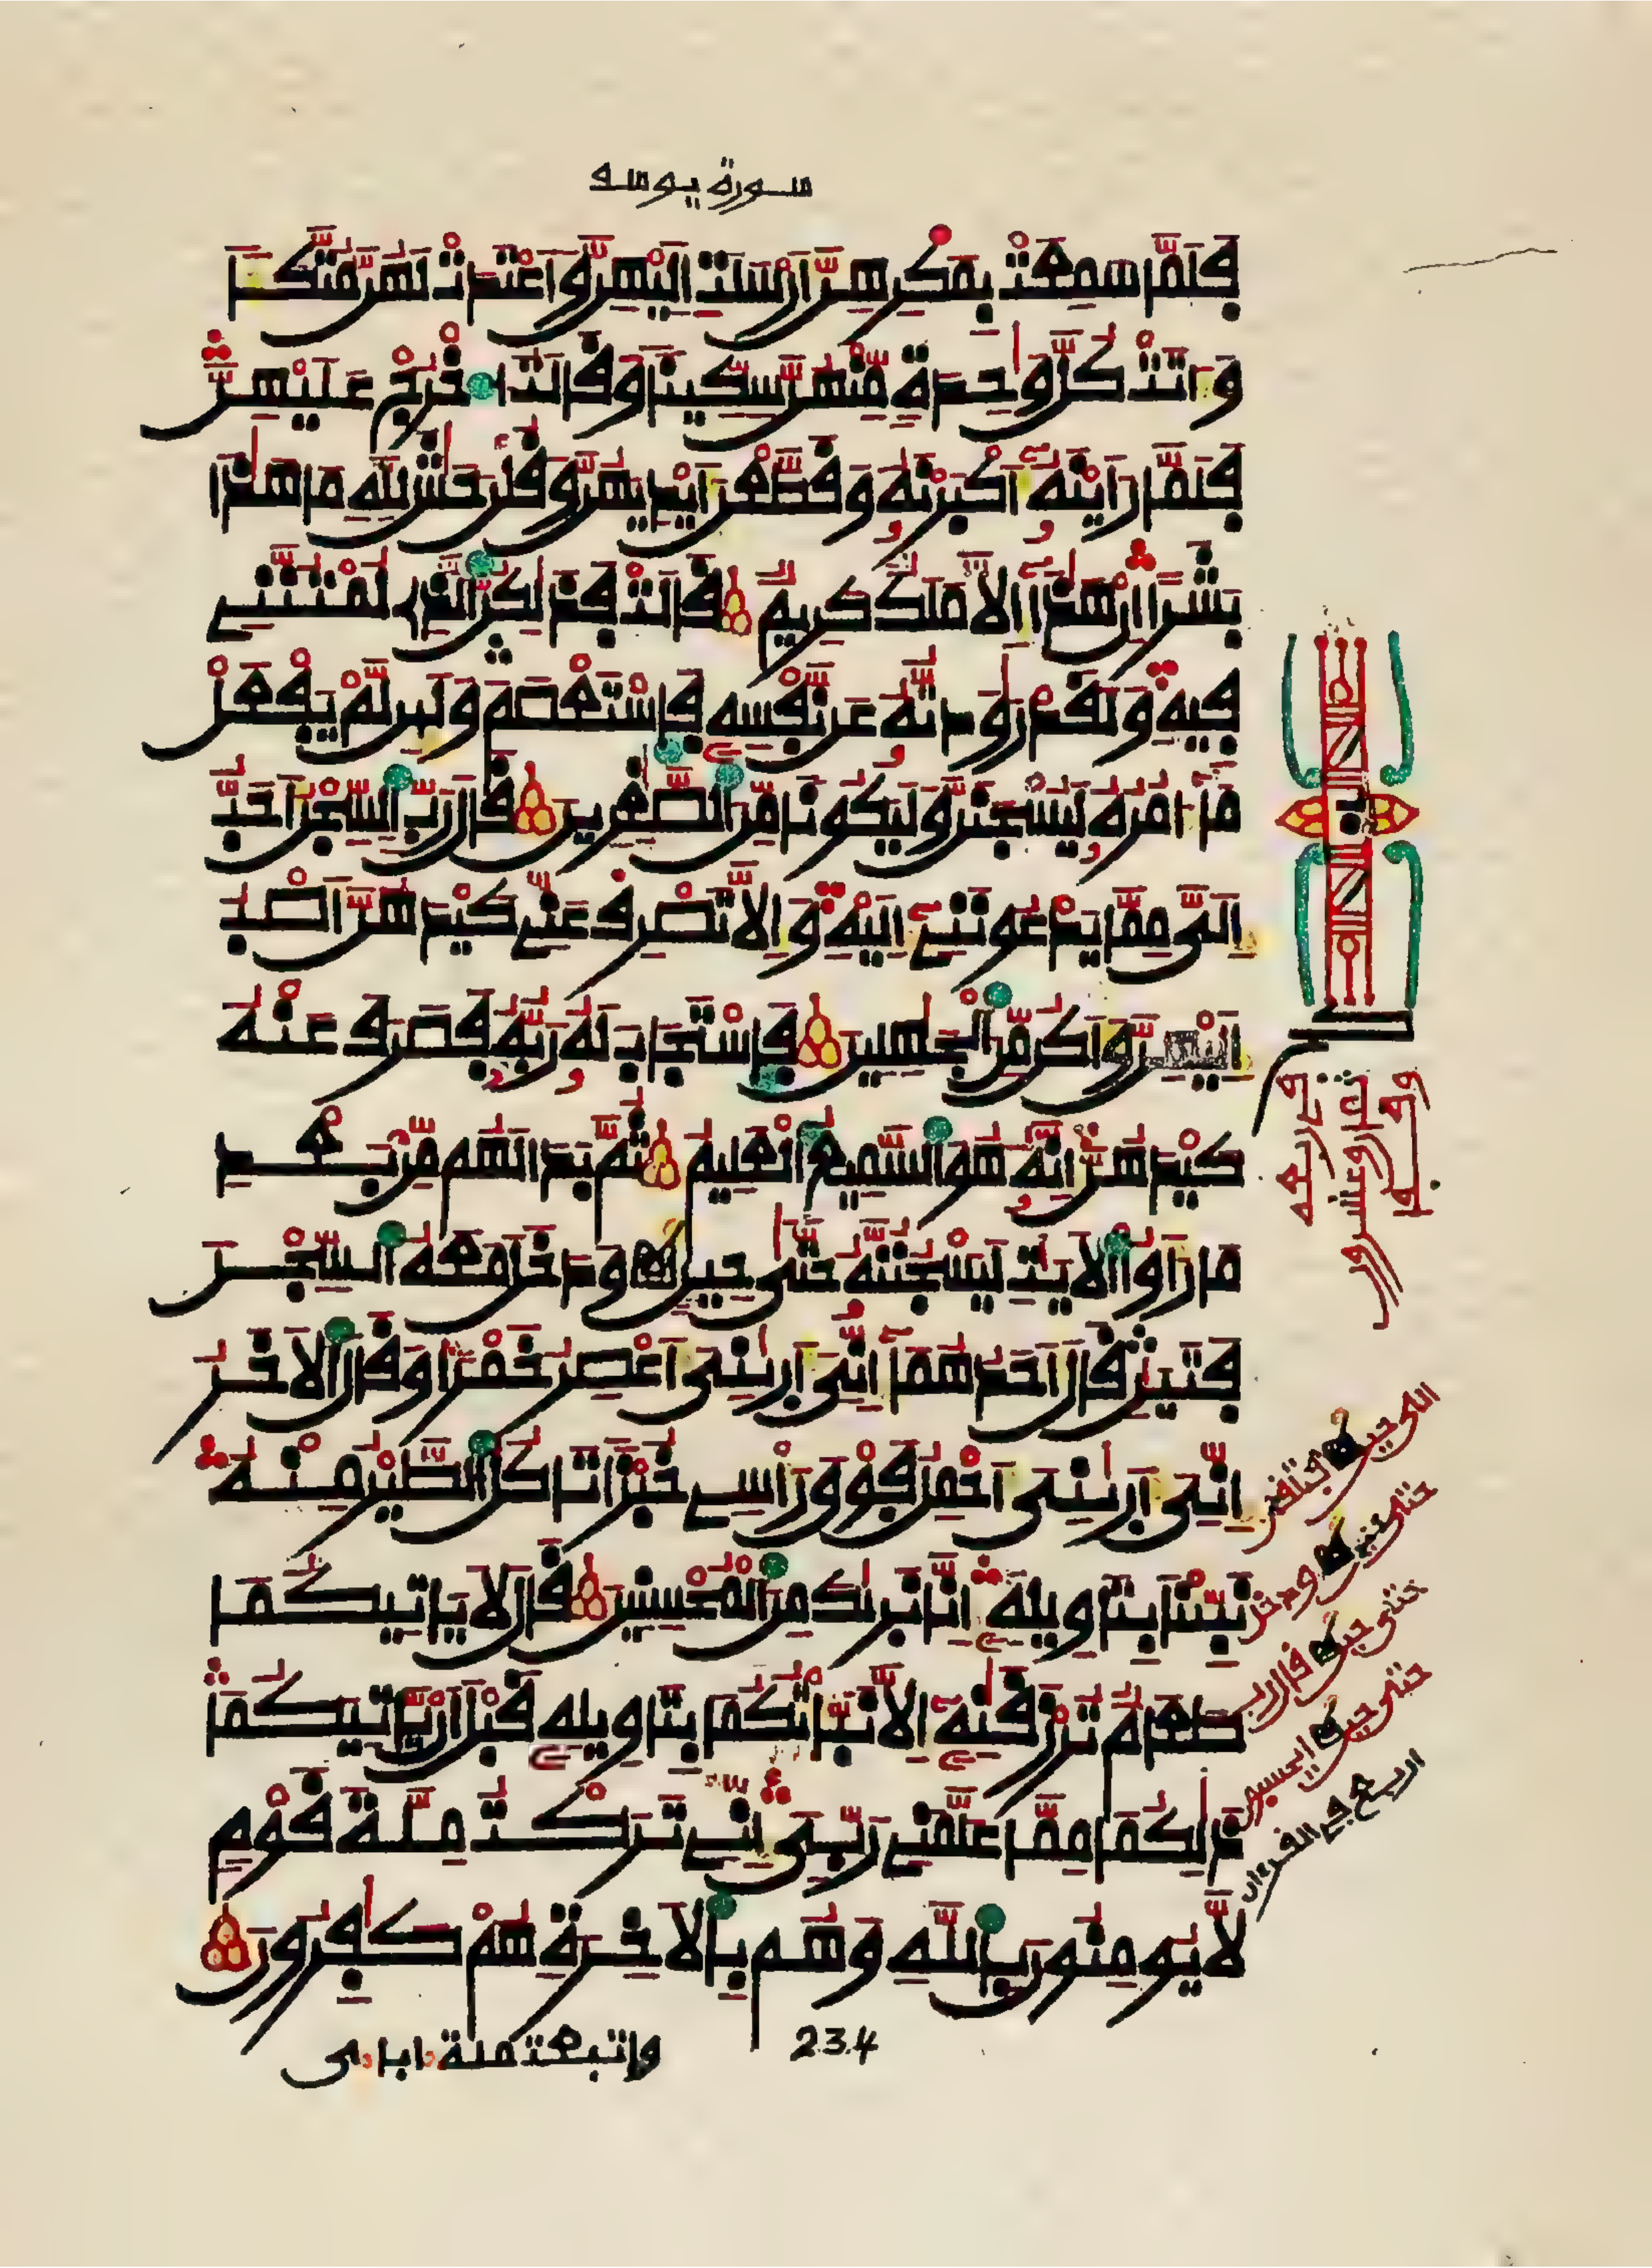 سورة يوسف
فلما سمعت بمكرهن أرسلت إليهن وأعتدت لهن متكا
وءاتت كل وحدة منهن سكينا وقالت اخرج عليهن
فلما رأينه أكبرنه وقطعن أيديهن وقلن حش لله ما هذا
بشرا إن هذا إلا ملك كريم قالت فذلكن الذي لمتنني
فيه ولقد رودته عن نفسه فاستعصم ولين لم يفعل
ما ءامره ليسجنن وليكونا من الصغرين قال رب السجن أحب
إلي مما يدعونني إليه وإلا تصرف عني كيدهن أصب
إليهن وأكن من الجهلين فاستجاب له ربه فصرف عنه
كيدهن إنه هو السميع العليم ثم بدا لهم من بعد
ما رأوا الأيت ليسجننه حتى حين ودخل معه السجن
فتين قال أحدهما إني أريني أعصر خمرا وقال الأخر
إني أريني أحمل فوق رأسي خبزا تاكل الطير منه
نبئنا بتاويله إنا نريك من المحسنين قال لا ياتيكما
طعام ترزقنه إلا نباتكما بتاويله قبل أن ياتيكما
ذلكما مما علمني ربي إني تركت ملة قوم
لا يومنون بالله وهم بالأخرة هم كفرون
واتبعت ملة ءاباءي
234
ب
الى حين
حتى حين ودخل
حتى حين قال رب
حتى حين ايحسبون
اربع في القرءان